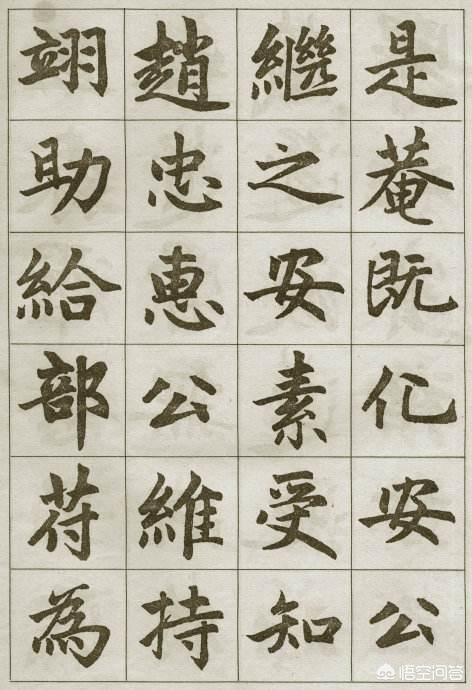 是菴既化安公
繼之安素受知
趙忠惠公維持
翊助給部苻為
悟空问答